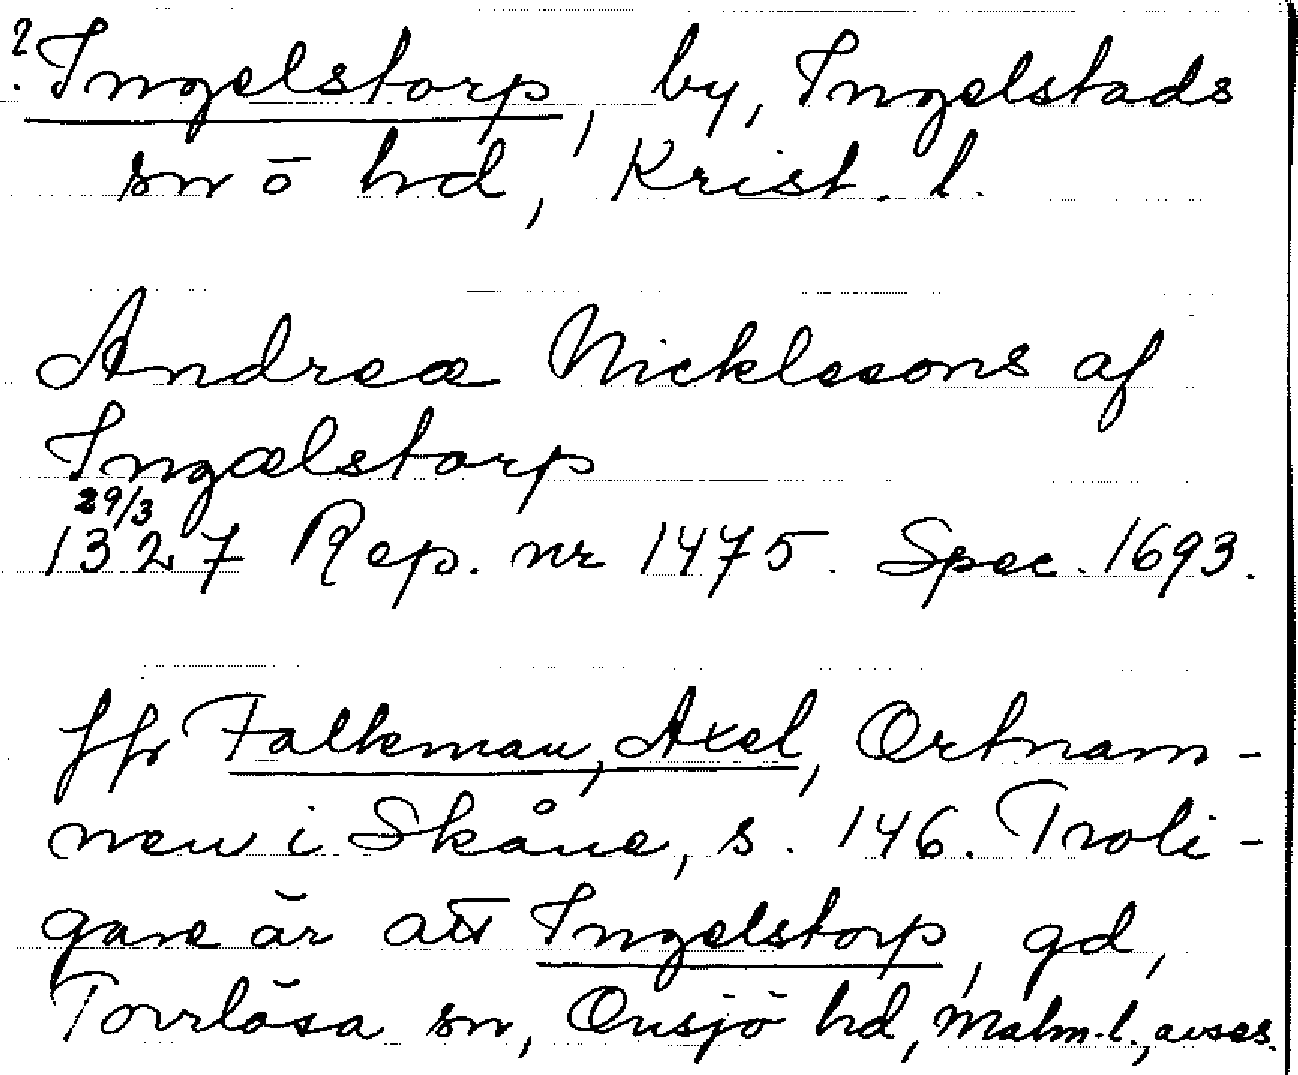 ? Ingelstorp, by, Ingelstads
sn ō hd, Krist. l.
Andreæ Nicklessons af
Ingælstorp
29/3
1327 Rep. nr 1475. Spec. 1693.
Jfr Falkman, Axel, Ortnam-
nen i Skåne, s. 146. Troli-
gare är att Ingelstorp, gd,
Torrlösa sn, Onsjö hd, Malm. l., avses.